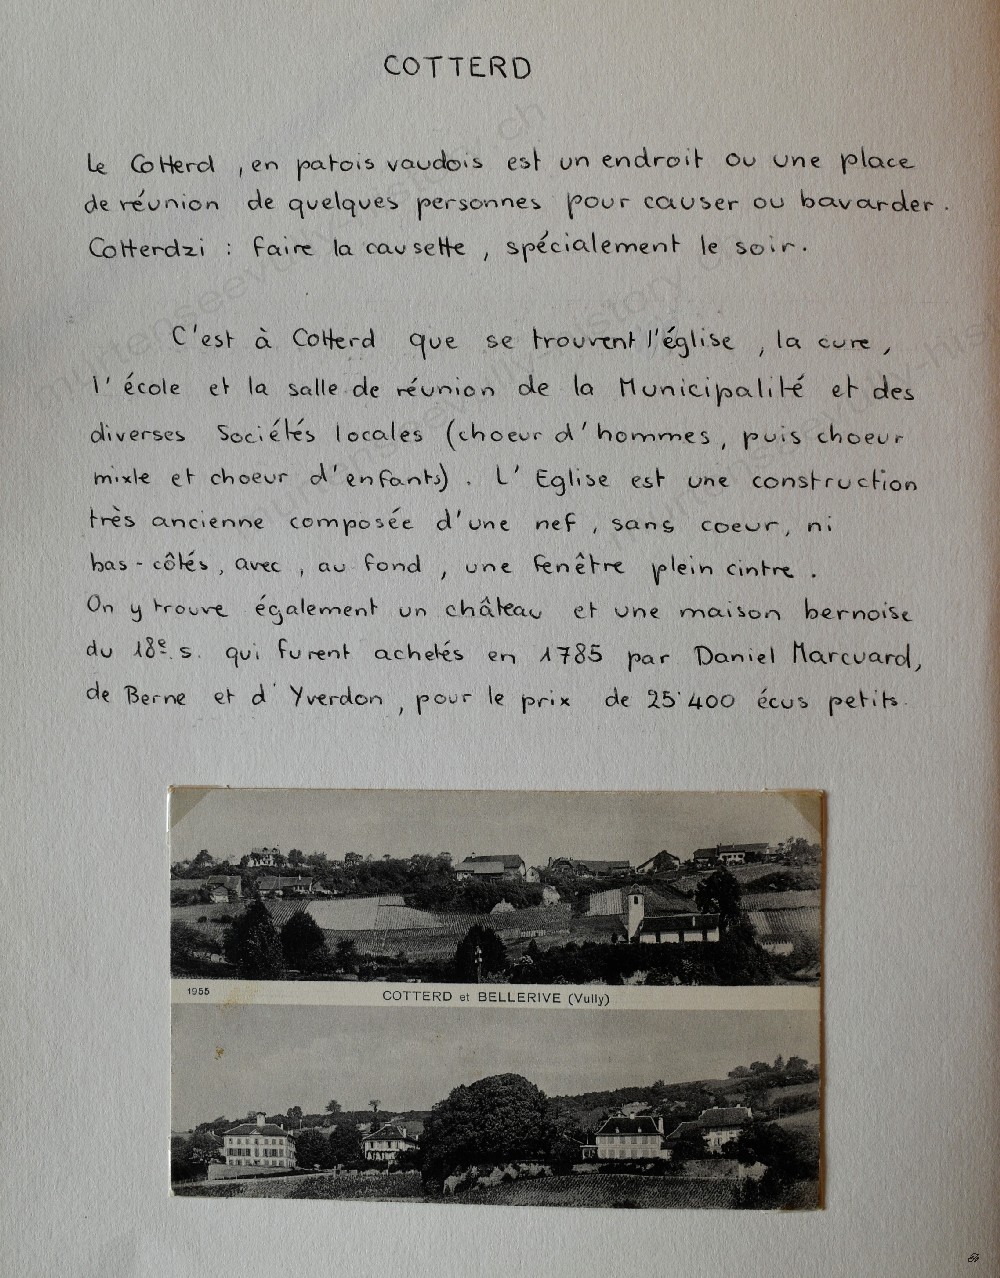 COTTERD
Le Cotterd, en patois vaudois est un endroit ou une place
de réunion de quelques personnes pour causer ou bavarder.
Cotterdzi : faire la causette, spécialement le soir.
C'est à Cotterd que se trouvent l'église, la cure,
l'école et la salle de réunion de la Municipalité et des
diverses Sociétés locales (choeur d'hommes, puis choeur
mixte et choeur d'enfants). L'Eglise est une construction
très ancienne composée d'une nef, sans coeur, ni
bas-côtés, avec, au fond, une fenêtre plein cintre.
On y trouve également un château et une maison bernoise
du 18e. s. qui furent achetés en 1785 par Daniel Marcuard,
de Berne et d'Yverdon, pour le prix de 25'400 écus petits.
1955 COTTERD et BELLERIVE (Vully)
murtenseevully-history.ch